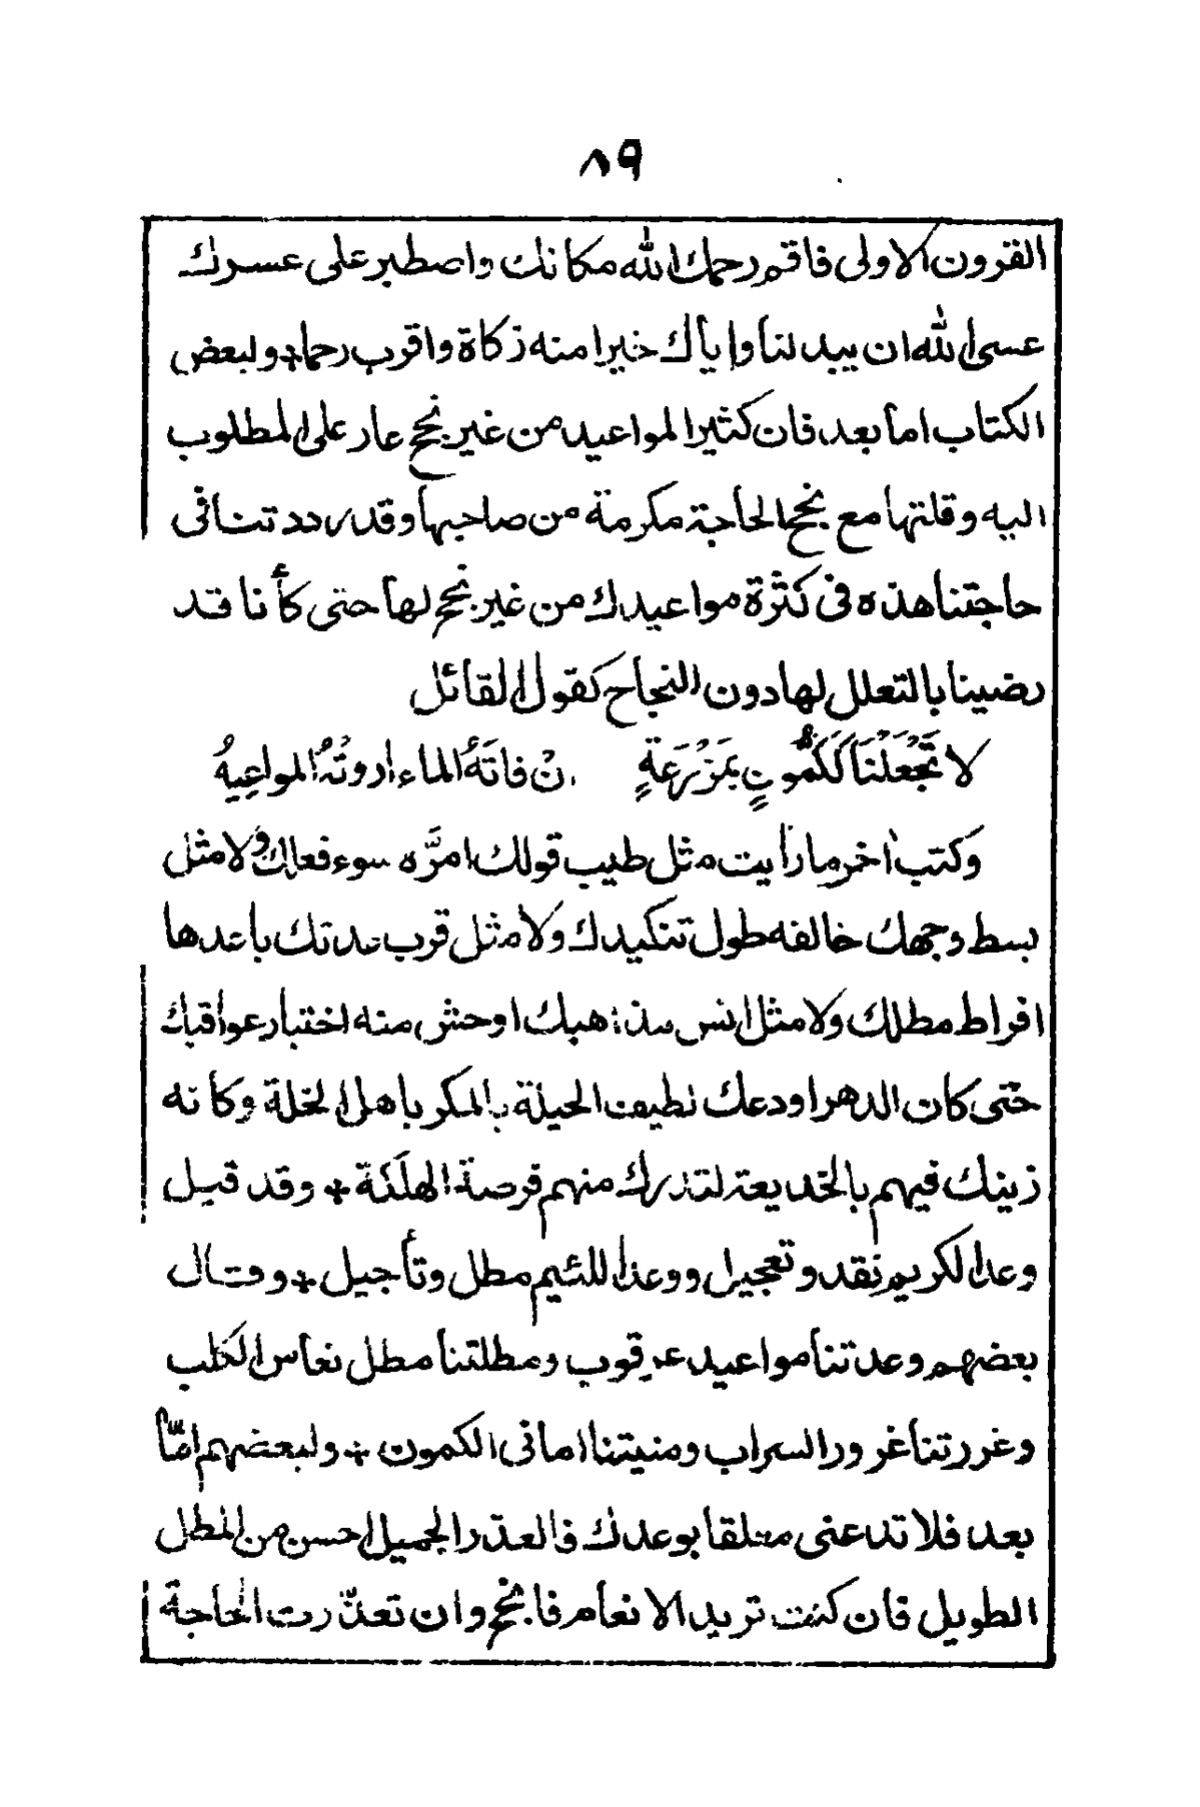 ٨٩
القرون الاولى فاقم رحمك الله مكانك واصطبر على عسرك
عسى الله ان يبدلنا واياك خيرا منه زكاة واقرب رحما + ولبعض
الكتاب اما بعد فان كثير المواعيد من غير نجح عار على المطلوب
اليه وقلتها مع نجح الحاجة مكرمة من صاحبها وقد رددتنا فى
حاجتنا هذه فى كثرة مواعيدك من غير نجح لها حتى كأنا قد
رضينا بالتعلل لها دون النجاح كقول القائل
لا تَجْعَلَنَّا كَكَمُّونٍ بمَزْرَعَةٍ ان فاتَهُ الماء اروتْهُ المواعِيدُ
وكتب اخر ما رأيت مثل طيب قولك امرَّه سوء فعلك ولا مثل
بسط وجهك خالفه طول تنكيدك ولا مثل قرب عدتك باعدها
افراط مطلك ولا مثل انس مذاهبك اوحش منه اختبار عواقبك
حتى كان الدهر اودعك لطيف الحيلة بالمكر باهل الخلة وكانه
زينك فيهم بالخديعة لتدرك منهم فرصة الهلَكَة + وقد قيل
وعد الكريم نقد وتعجيل ووعد اللئيم مطل وتأجيل + وقال
بعضهم وعدتنا مواعيد عرقوب ومطلتنا مطل نعاس الكلب
وغررتنا غرور السراب ومنيتنا امانى الكمون + ولبعضهم امّا
بعد فلا تدعنى معلقا بوعدك فالعذر الجميل احسن من المطل
الطويل فان كنت تريد الانعام فانجح وان تعذّرت الحاجة